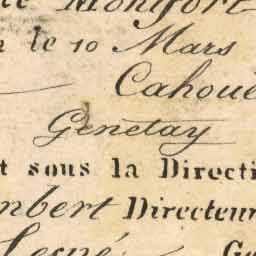 Montfort
le 10 Mars
Cahoue
Genetay
t sous la Directi
mbert Directeur
Lesné